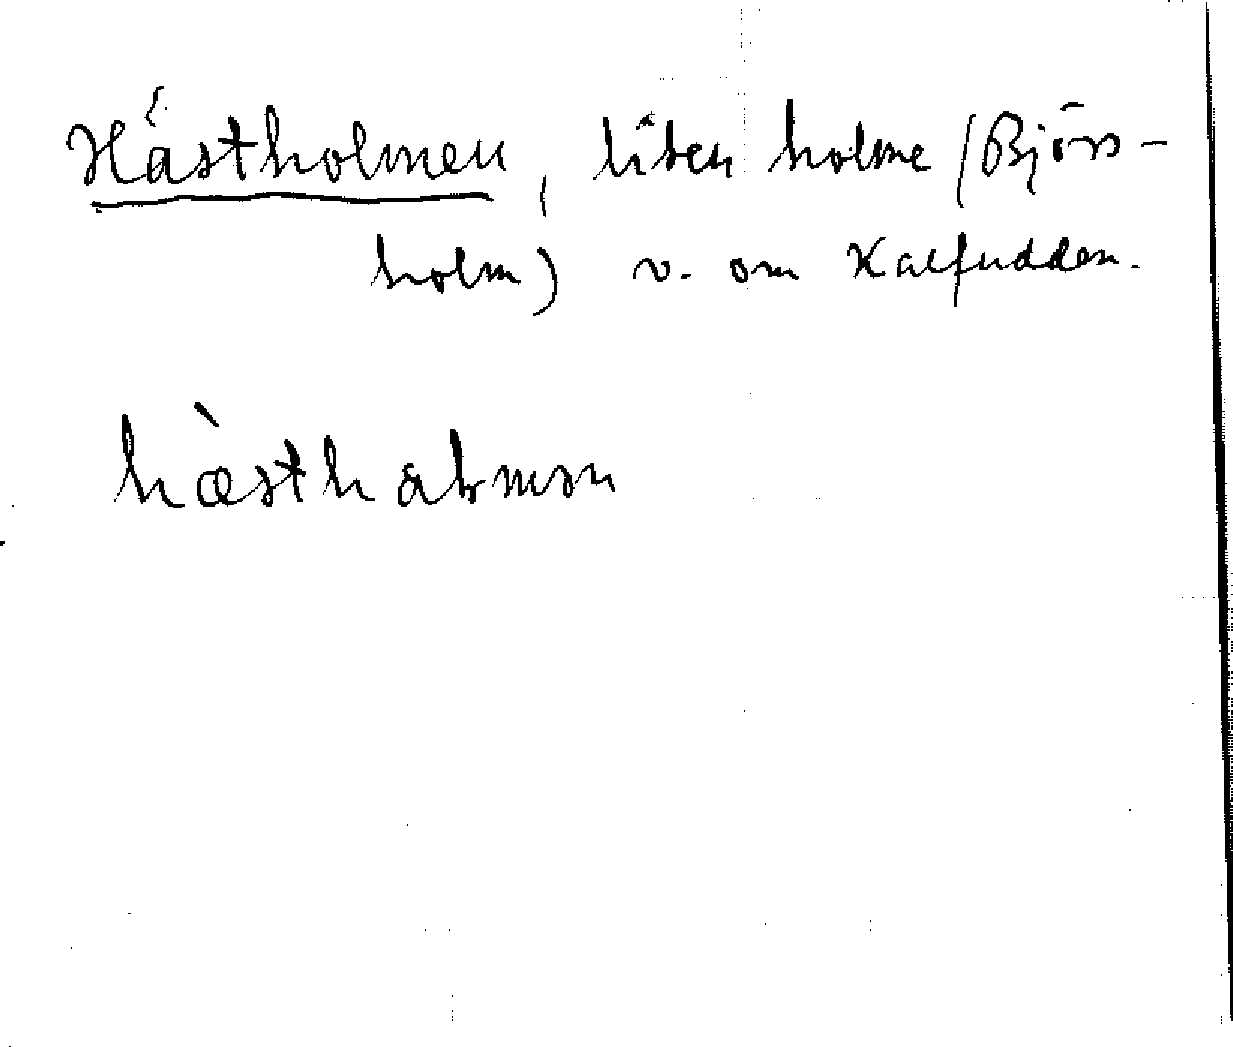 Hästholmen, liten holme (Björs-
holm) v. om Kalfudden.
hæ̀sthalmən